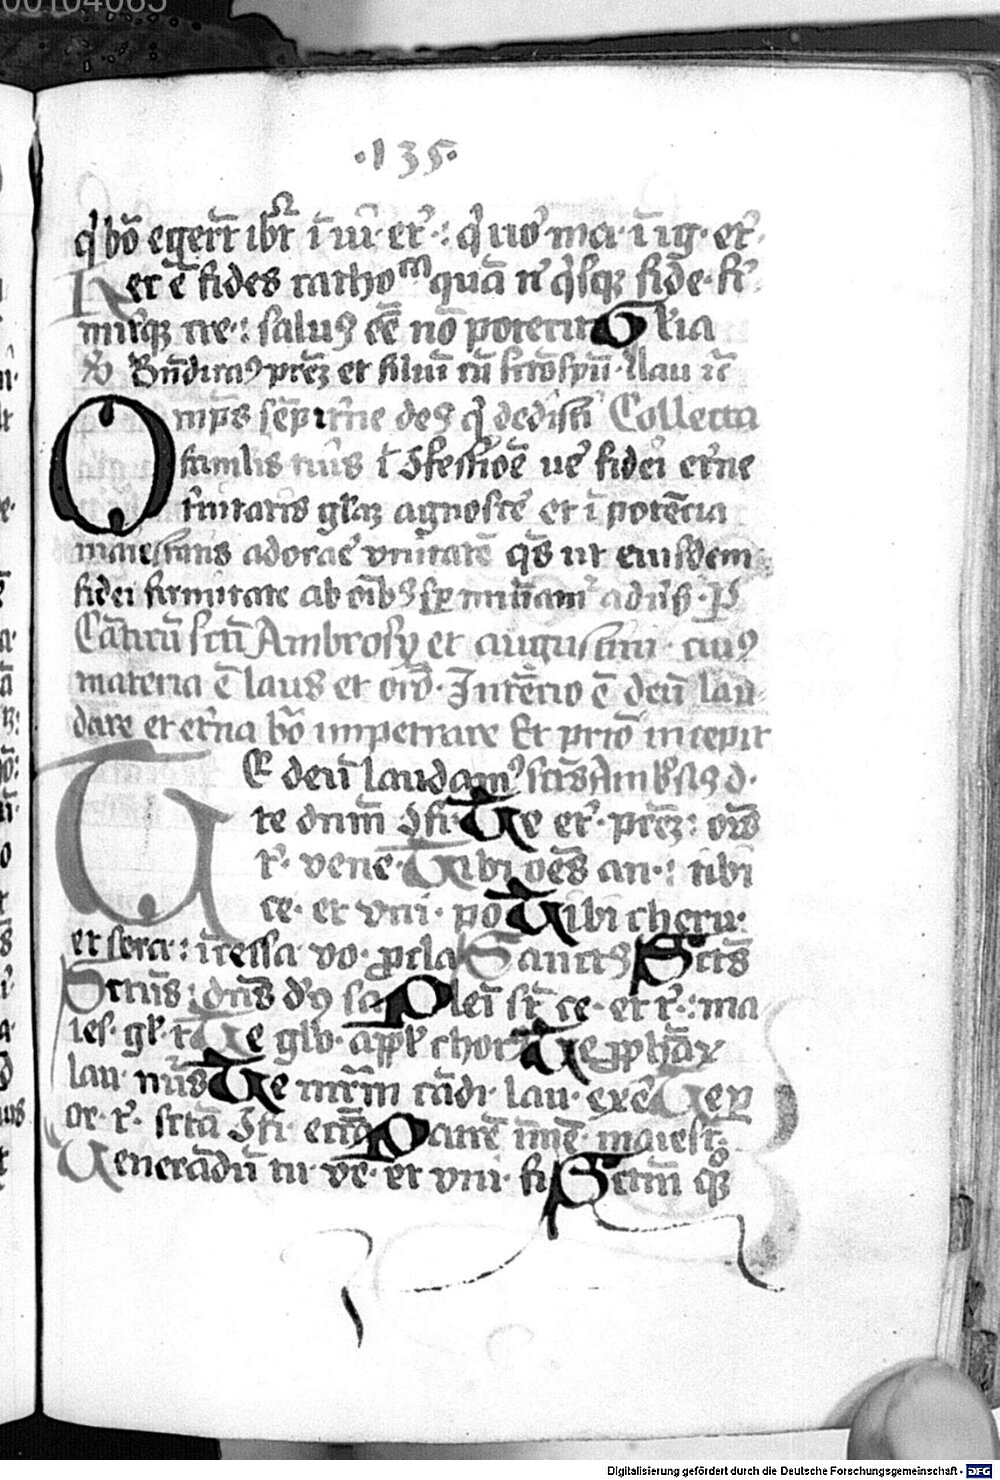 00104065
·135·
q bō egerr̄t ibr̄t ī ui· et᷑ : q̇ uo᷑ ma· ī ig· et᷑·
Hec ē fides cathoᵐ quā n̄ q̇sq; fide· fi᷑·
mit᷑q; cre·: saluꝰ eē nō poterit Gl᷑ia
Bn̄dicaꝰ prē; et filiū cū sctō spū· Lau et᷑
Omp̄s sēpit᷑ne deꝰ q̇ dedisti Collecta
famulis tuis ī ɔfessiōē ue᷑ fidei et᷑ne
t᷑nitatis gl᷑ia; agnosce᷑ et ī potētia
maiestatis adorae᷑ vnitatē qs̄ ut eiusdem
fidei firmitate ab oīb̄ꝰ sꝑ muniam᷑ adu᷑s̄· P
Cāticū sctī Ambrosy et augustini· cuiꝰ
materia ē laus et orō· Intētio ē deū lau-
dare et et᷑na bō impetrare Et prīo incepit
TE deū laudamꝰ sctūs Amb᷑siꝰ d·
te dnm̄ ɔfi· Te et᷑· prē;: oīs
t᷑· vene· Tibi oēs an·: tibi
ce· et vni· po Tibi cheru:
et sera: īcessa vo· ꝓcla Sanctꝰ Sctūs
Sctus̄: dn̄s dꝰ sa Pleī st᷑ ce· et t᷑·: ma
ies· gl᷑· t᷑ Te glo· appl᷑ chorꝰ Te ꝓphāꝝ
lau· nu᷑s Te mr̄m cādi· lau· exe᷑ Te ꝑ
or· t᷑· sctā ɔfi· eccīa Patrē īmē· maiest᷑·
Venerādū tu· ve· et vni· fi Sctm̄ qȝ
Digitalisierung gefördert durch die Deutsche Forschungsgemeinschaft - DFG